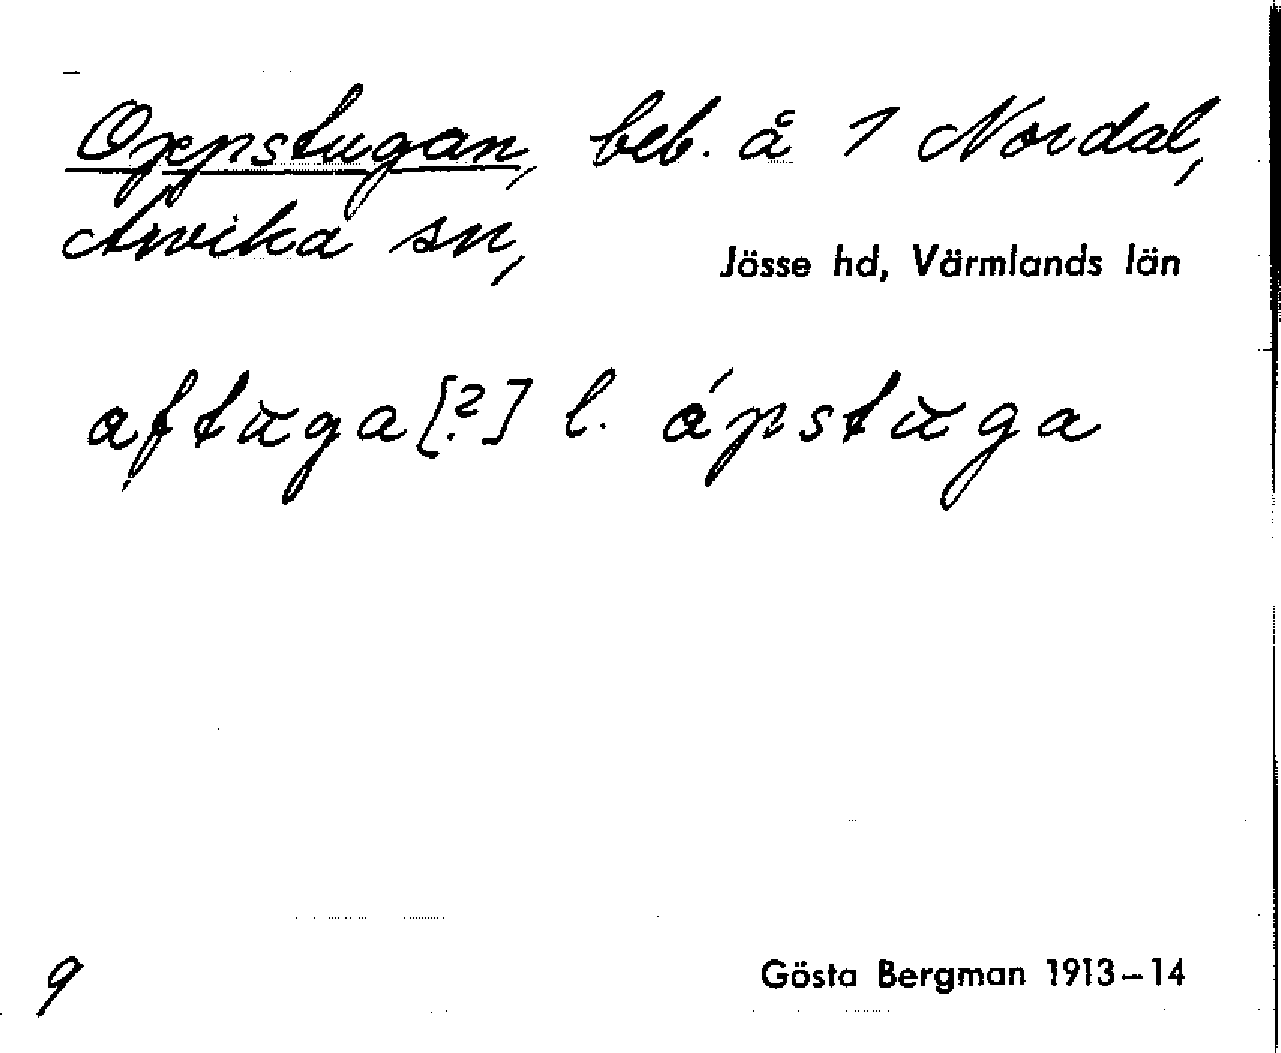 Oppstugan, beb. å 1 Nordal,
Arvika sn,
Jösse hd, Värmlands län
aftuga [?] l. ápstuga
9
Gösta Bergman 1913–14